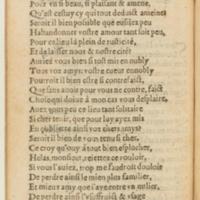 Pour vn si beau, si plaisant & amene,
Qu'est cestuy cy qui tout deduit ameine:
Seroit il bien possible que eussiez peu
Habandonner vostre amour tant soit peu,
Pour ce lieu là plein de rusticité,
Et delaisser nous & nostre cité?
Auriez vous bien si tost mis en
Tous voz amys: vostre cueur ennobly
Pourroit il bien estre si contrefaict,
Que sans auoir pour vous ne contre, faict
Chose qui doiue à mon cas vous desplaire,
Auez quis peu ce lieu tant solitaire
Si cher tenir, que pour luy ayez mis
En publiant voz chers amys?
Seroit il bien de vous tenu si cher.
Ce croy qu'ouy à tout bien esplucher,
Helas, monsieur, reiettez ce rouloir,
Si vous l'auiez, trop me faudroit douloir
De perdre ainsi le mien plus familier,
Et mieux amy que i'aye entre vn milier,
De perdre ainsi l'vsufruict & vsage